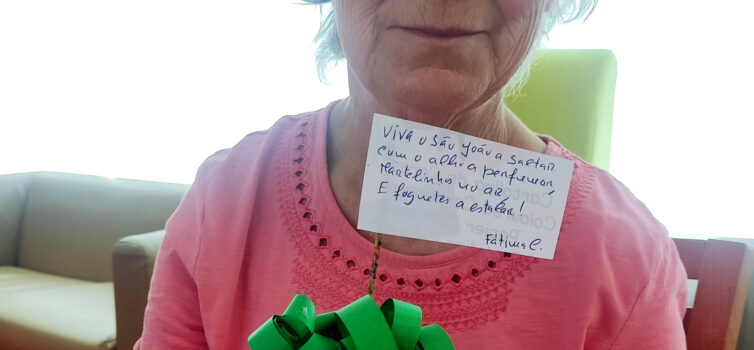 Viva o São João a saltar
com o alho a perfumar,
Martelinhos no ar
E foguetes a estalar!
Fátima C.